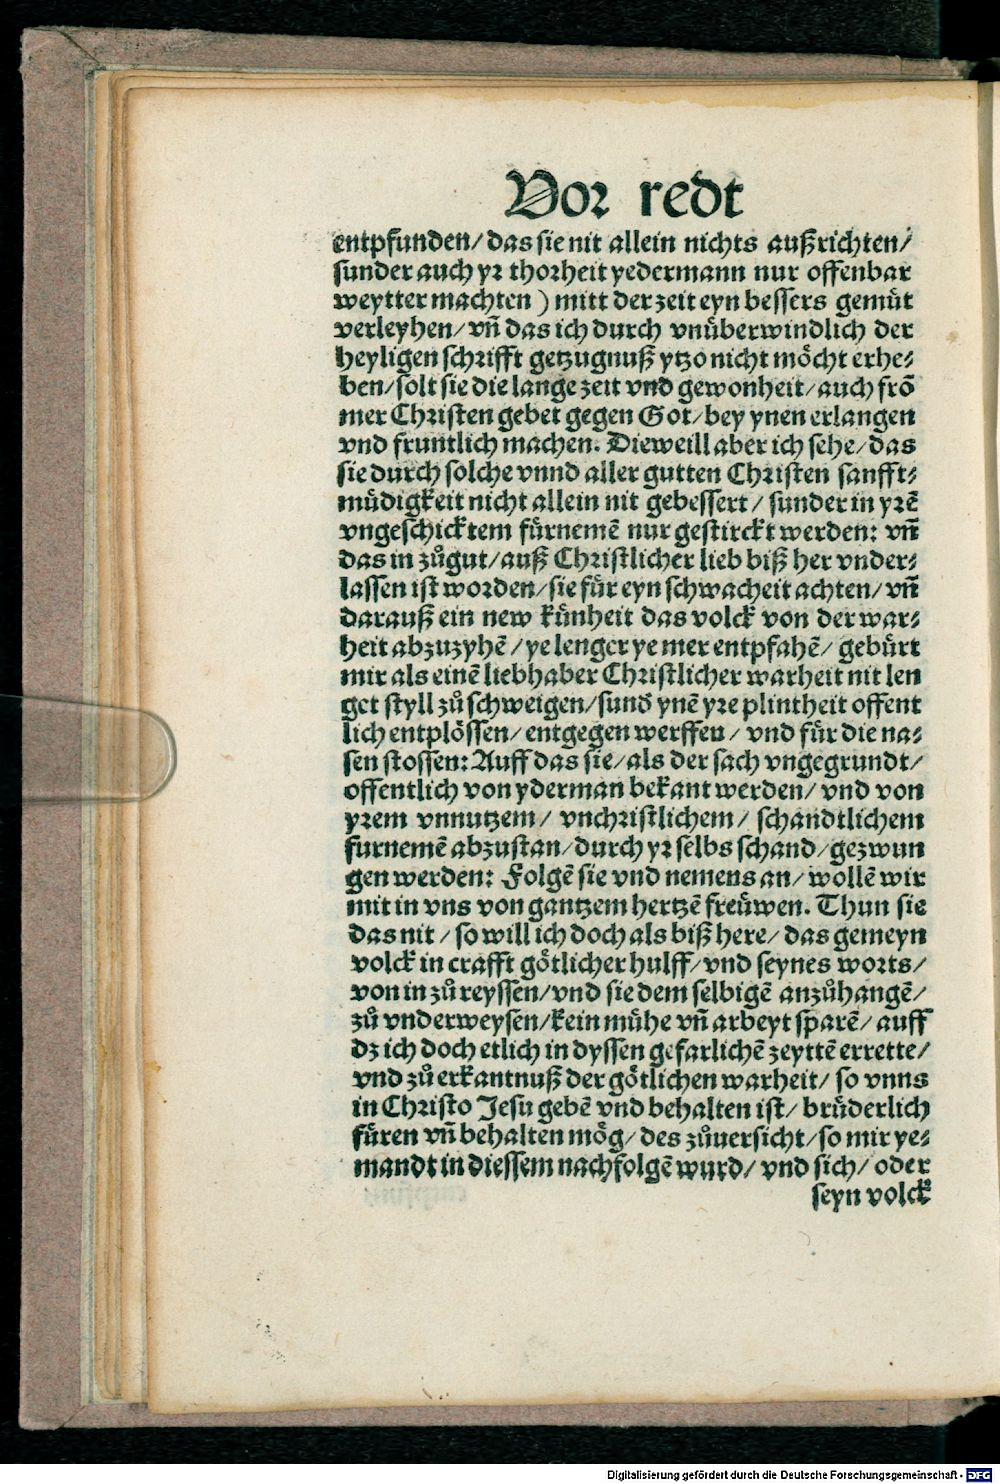 Vor redt
entpfunden/ das sie nit allein nichts außrichten/
sunder auch yr thorheit yedermann nur offenbar
weytter machten ) mitt der zeit eyn bessers gemüt
verleyhen/ vñ das ich durch vnüberwindlich der
heyligen schrifft getzugnuß ytzo nicht möcht erhe⸗
ben/ solt sie die lange zeit vnd gewonheit/ auch frõ
mer Christen gebet gegen Got/ bey ynen erlangen
vnd fruntlich machen. Dieweill aber ich sehe/ das
sie durch solche vnnd aller gutten Christen sanfft⸗
müdigkeit nicht allein nit gebessert/ sunder in yrẽ
vngeschicktem fürnemẽ nur gestirckt werden: vñ
das in zůgut/ auß Christlicher lieb biß her vnder⸗
lassen ist worden/ sie für eyn schwacheit achten/ vñ
darauß ein new künheit das volck von der war⸗
heit abzuzyhẽ/ ye lenger ye mer entpfahẽ/ gebürt
mir als einẽ liebhaber Christlicher warheit nit len
get styll zů schweigen/ sund̕ ynẽ yre plintheit offent
lich entplössen/ entgegen werffen/ vnd für die na⸗
sen stossen: Auff das sie/ als der sach vngegrundt/
offentlich von yderman bekant werden/ vnd von
yrem vnnutzem/ vnchristlichem/ schandtlichem
furnemẽ abzustan/ durch yr selbs schand/ gezwun
gen werden: Folgẽ sie vnd nemens an/ wollẽ wir
mit in vns von gantzem hertzẽ freüwen. Thun sie
das nit/ so will ich doch als biß here/ das gemeyn
volck in crafft götlicher hulff/ vnd seynes worts/
von in zů reyssen/ vnd sie dem selbigẽ anzůhangẽ/
zů vnderweysen/ kein mühe vñ arbeyt sparẽ/ auff
dz ich doch etlich in dyssen gefarlichẽ zeyttẽ errette/
vnd zů erkantnuß der götlichen warheit/ so vnns
in Christo Jesu gebẽ vnd behalten ist/ brüderlich
füren vñ behalten mög/ des zůuersicht/ so mir ye⸗
mandt in diessem nachfolgẽ wurd/ vnd sich/ oder
seyn volck
Digitalisierung gefördert durch die Deutsche Forschungsgemeinschaft - DFG